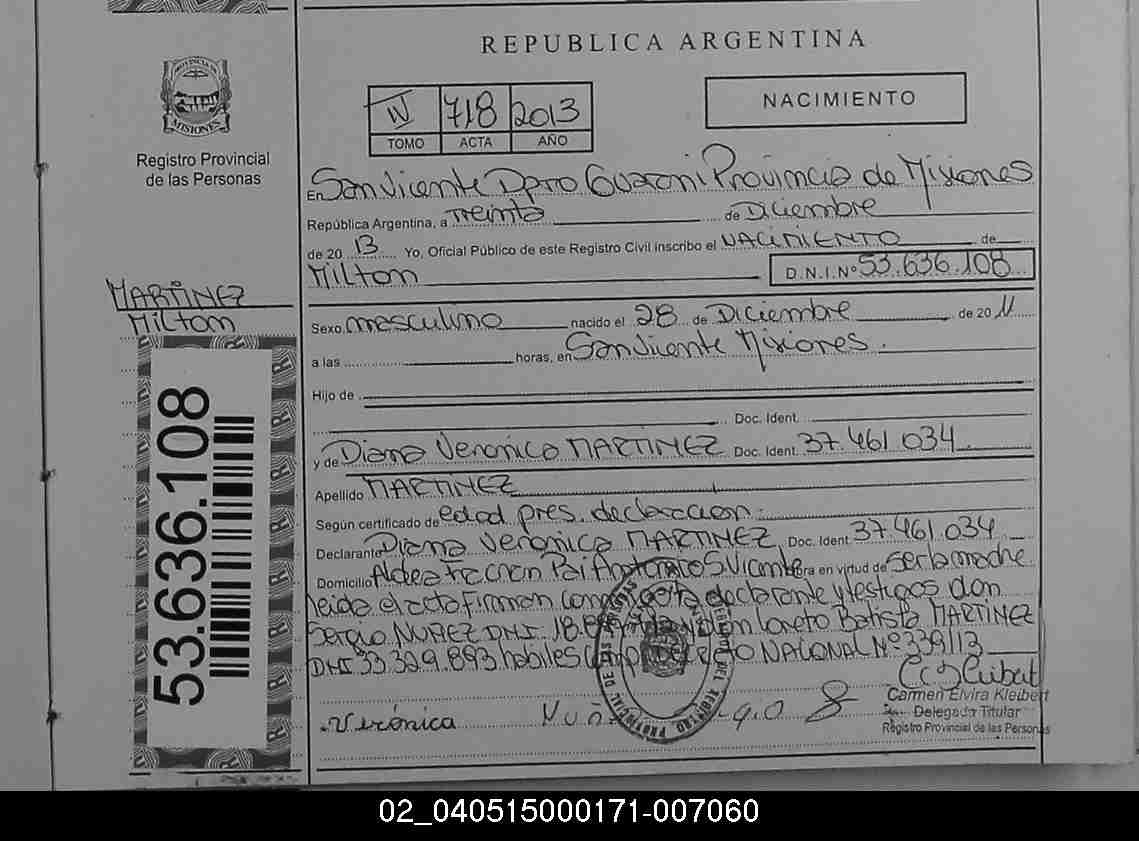 REPUBLICA ARGENTINA
PROVINCIA DE
MISIONES
Registro Provincial
de las Personas
IV 718 2013
TOMO ACTA AÑO
NACIMIENTO
En San Vicente Dpto Guarani Provincia de Misiones
República Argentina, a Treinta de Diciembre
de 2013 Yo, Oficial Público de este Registro Civil inscribo el NACIMIENTO de
Milton D.N.I. Nº 53.636.108
MARTINEZ
Milton
53.636.108
Sexo masculino nacido el 28 de Diciembre de 2011
a las horas, en San Vicente Misiones.
Hijo de
Doc. Ident.
y de Diana Veronica MARTINEZ Doc. Ident. 37.461.034
Apellido MARTINEZ
Según certificado de edad pres. declaracion.
Declarante Diana Veronica MARTINEZ Doc. Ident 37.461.034
Domicilio Aldea Pai Antonio S. Vicente obra en virtud de ser la madre
leida el acta firman conmigo la declarante y testigos don
Sergio NUÑEZ DNI 18. don Loreto Batista MARTINEZ
DNI 33.329.893 habiles NACIONAL Nº 339/13
Verónica
Carmen Elvira Kleibert
Delegada Titular
Registro Provincial de las Personas
02_040515000171-007060